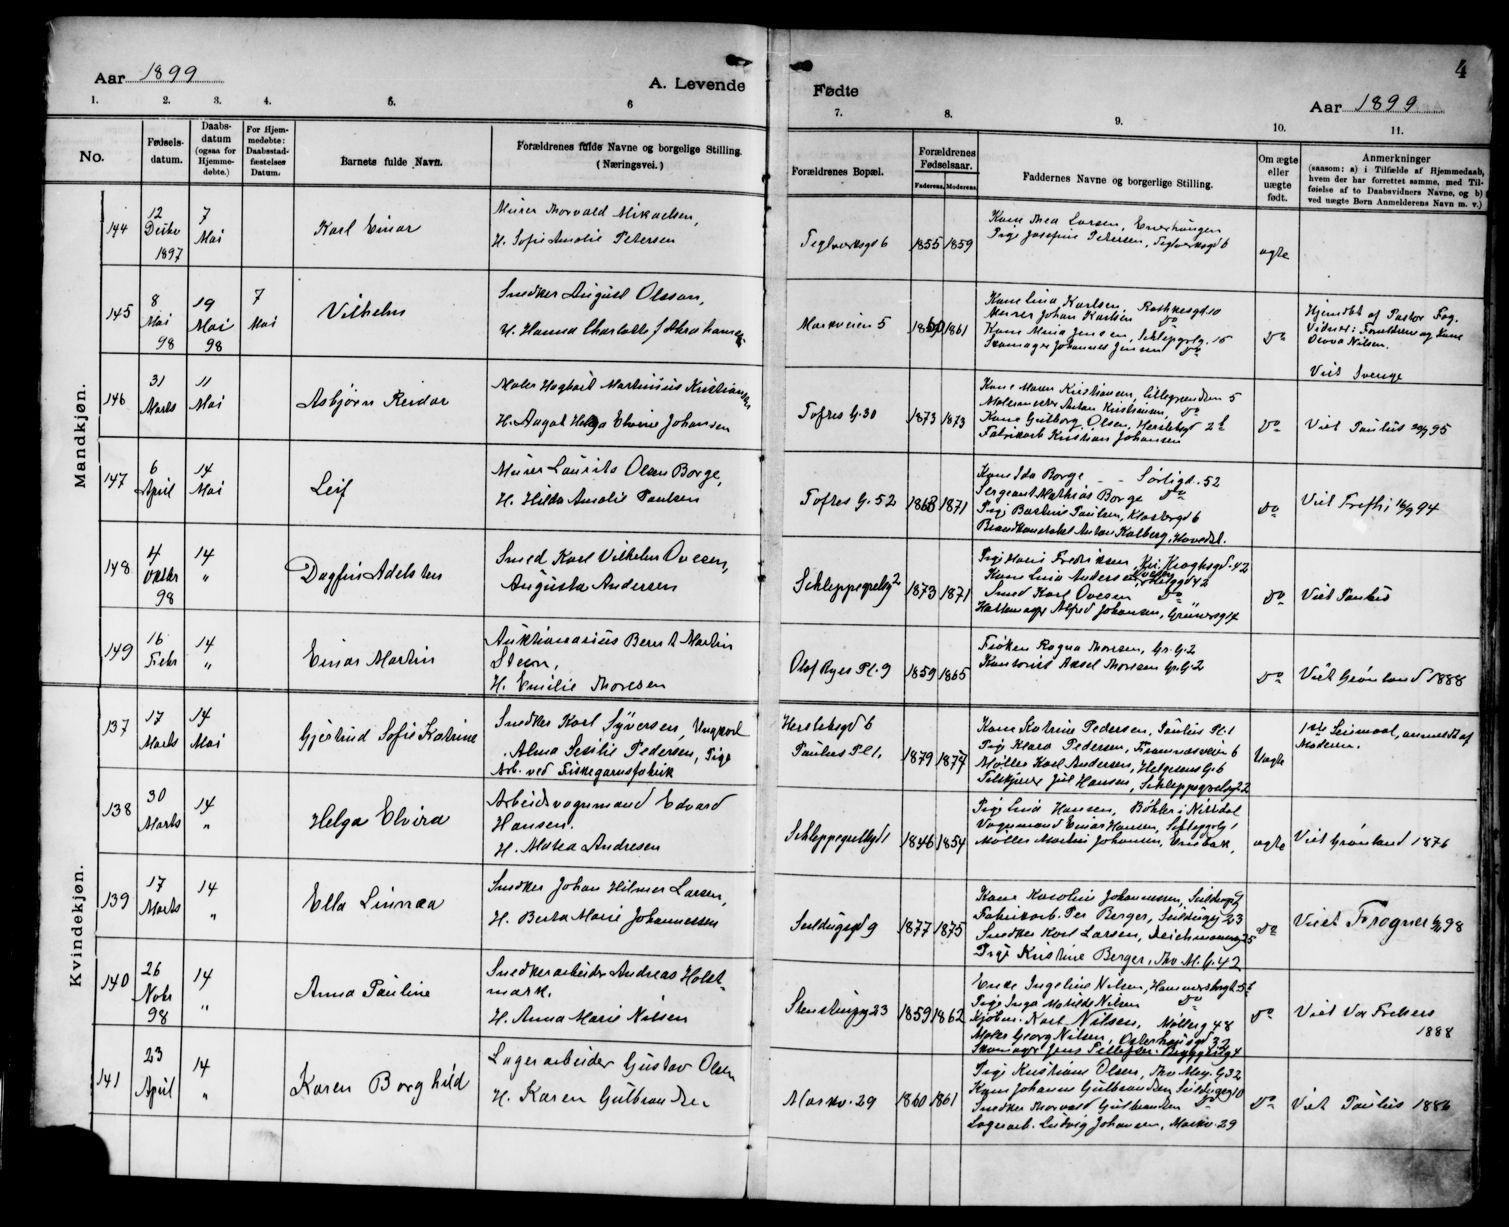 Aar 1899
A. Levende
Fødte
4
Aar 1899
1. 2. 3. 4. 5. 6
7. 8. 9. 10. 11.
No.
Fødsels-
datum.
Daabs-
datum
(ogsaa for
Hjemme-
døbte.)
For Hjem-
medøbte:
Daabsstad-
fæstelses
Datum.
Barnets fulde Navn.
Forældrenes fulde Navne og borgelige Stilling.
(Næringsvei.)
Forældrenes Bopæl.
Forældrenes
Fødselsaar.
Faderens. Moderens.
Faddernes Navne og borgerlige Stilling.
Om ægte
eller
uægte
født.
Anmerkninger
(saasom: a) i Tilfælde af Hjemmedaab,
hvem der har forrettet samme, med Til-
føielse af to Daabsvidners Navne, og b)
ved uægte Børn Anmelderens Navn m. v.)
Mandkjøn.
144
12
Decbr
1897
7
Mai
Karl Einar
Murer Thorvald Mikaelsen,
H. Sofie Amalie Petersen
Teglverksgd 6
1855 1859
Kone Thea Larsen, Enerhaugen
Pige Josefine Petersen, Teglverksgd 6
ægte
145
8
Mai
98
19
Mai
98
7
Mai
Vilhelm
Snedker August Olsson,
H. Hanna Charlotte f. Abrahamsen
Markveien 5
1861
Kone Lina Karlsen, Rathkesgd 10
Murer Johan Karlsen Do
Kone Maria Jensen, Schleppgrlg. 15
Skomager Johannes Jensen Do
Do
Hjemdbt af Pastor Fog.
Vidner: Forældrene og Kone
Nilsen.
Viet Sverige
146
31
Marts
11
Mai
Asbjørn Reidar
Maler Hagbart Martinius Kristiansen
H. Aagot Helga Elvine Johansen
Toftes G. 30
1873 1873
Kone Maren Kristiansen, Lillegrændsen 5
Anton Kristiansen, Do
Kone Gulborg Olsen, Herslebsgd 2b
Fabrikarb Kristian Johansen
Do
Viet Paulus 95
147
6
April
14
Mai
Leif
Murer Laurits Olsen Borge,
H. Hilda Amalie Paulsen
Toftes G. 52
1868 1871
Kone Ida Borge - - Sørligd. 52
Sergeant Mathias Borge Do
Pige Bartine Paulsen, Klostergd 6
Brandkonstabel Anton Kalberg, Hovedst.
Do
Viet Trefh. 16/9 94
148
4
Oktbr
98
14
"
Dagfin Adelsten
Smed Karl Vilhelm Ovesen,
Augusta Andersen
Schleppegrelsg 2
1873 1871
Pige Marie Fredriksen, Kri. Kroghsgd. 42
Kone Lina Andersen,
Smed Karl Ovesen Do
Hattemager Alfred Johansen, Grünersg 14
Do
Viet Paulus
149
16
Febr
14
"
Einar Martin
Auktionarius Bernt Martin
Steen,
H. Emilie Thoresen
Olaf Ryes Pl. 9
1859 1865
Frøken Ragna Thoresen, Gr. G. 2
Kontorist Axsel Thoresen Gr. G. 2
Do
Viet Grønland 1888
Kvindekjøn.
137
17
Marts
14
Mai
Gjertrud Sofie Katrine
Snedker Karl Syversen, Ungkarl
Alma Sesilie Pedersen, Pige
Arb. ved Fiskegarnsfabrik
Herslebsgd 6
Paulus Pl. 1.
1879 1874
Kone Katrine Pedersen, Paulus Pl. 1
Pige Klara Pedersen, Framnæsveien 6
Møller Karl Andersen, Helgesens G. 6
Jul Hansen, Schleppegrelsg 22
Uægte
1ste Leiermaal, anmeldt af
Moderen.
138
30
Marts
14
"
Helga Elvira
Arbeidsvognmand Edvard
Hansen.
H. Matea Andresen
Schleppegrelsgd 1
1846 1854
Pige Lina Hansen, Bøhler i Nittedal
Vognmand Einar Hansen, Schleppg. 1
Møller Martin Johansen, Ensbak,
ægte
Viet Grønland 1876
139
17
Marts
14
"
Ella Linnæa
Snedker Johan Hilmer Larsen,
H. Berta Marie Johannessen
Seildugsgd 9
1877 1875
Kone Karoline Johannessen, Seildugsg 9
Fabrikarb. Per Berger, Seildugsg 23
Snedker Karl Larsen, Deichmannsg 25
Pige Kristine Berger, Thv. M. G. 42
Do
Viet Frogner 98
140
26
Novbr
98
14
"
Anna Pauline
Snedkerarbeider Andreas Holst-
mark.
H. Anna Marie Nilsen
Stenstrupg 23
1859 1862
Enke Ingeline Nilsen,
Pige Inga Matilde Nilsen Do
Kjøbm. Karl Nilsen, Møllerg 48
Maler Georg Nilsen, Osterhausgd 32
Skomager Jens Pettersen
Do
Viet Vor Frelsers
1888
141
23
April
14
"
Karen Borghild
Lagerarbeider Gustav Olsen
H. Karen Gulbrandsen
Markv. 29
1860 1861
Pige Kristiane Olsen, Thv. Mey. G. 32
Kone Johanne Gulbrandsen Seildugsg 10
Snedker Thorvald Gulbrandsen Do
Lagerarb. Ludvig Johansen, Markv. 29
Do
Viet Paulus 1886